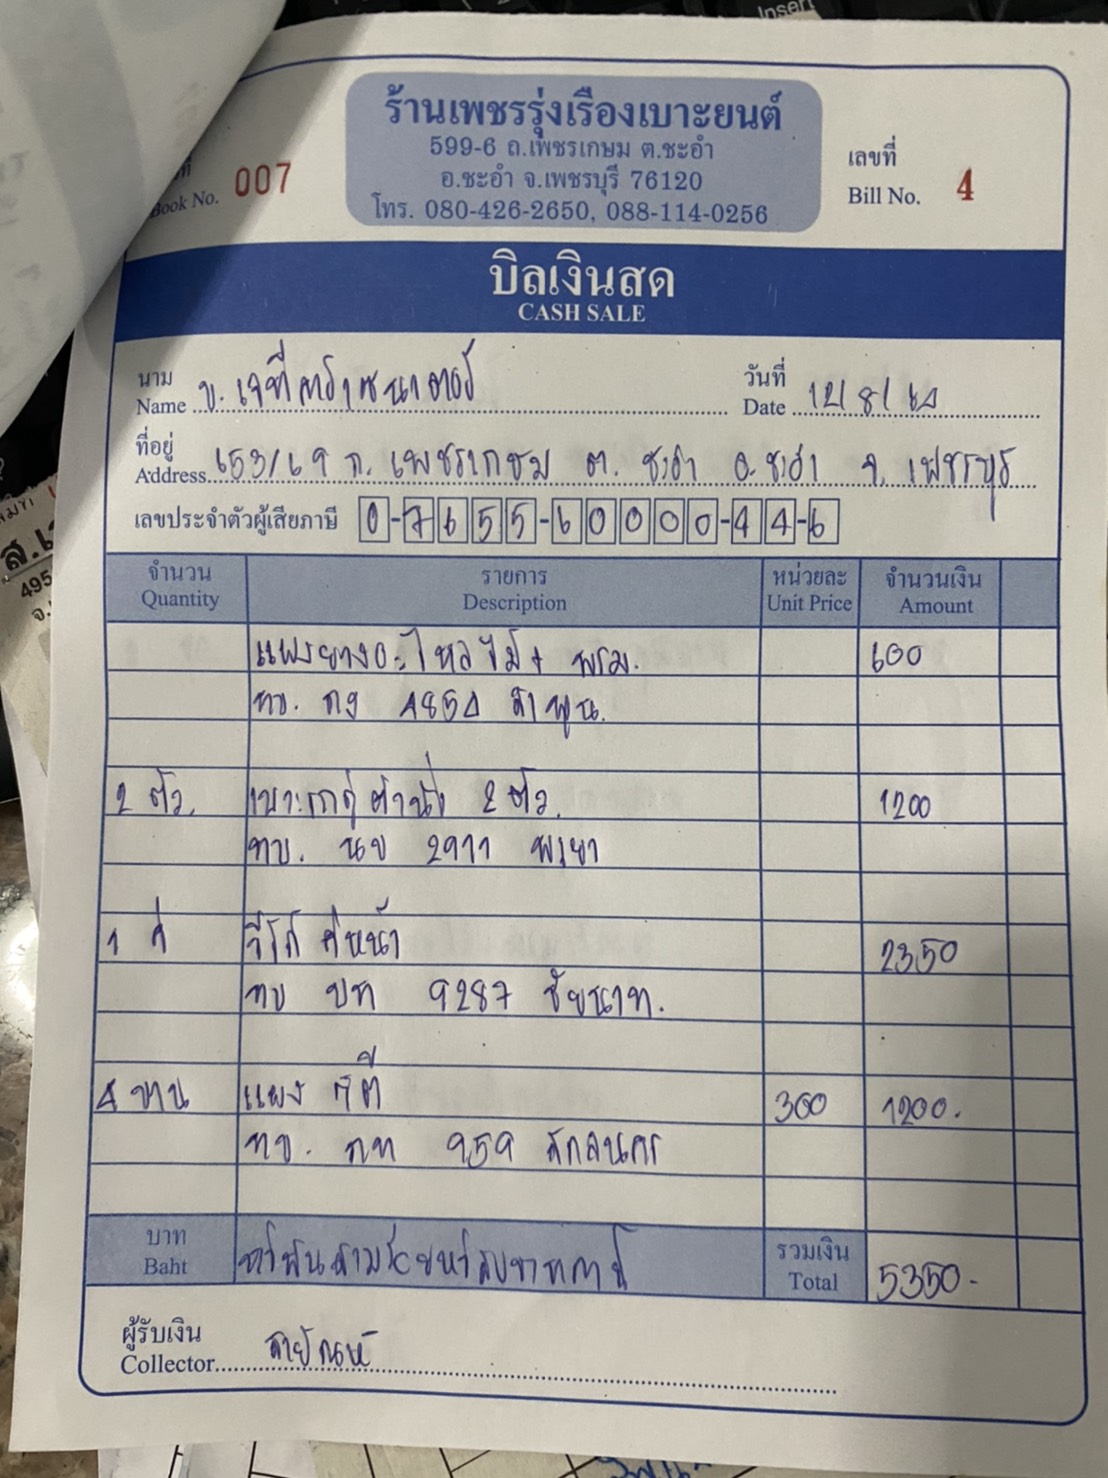 Insert
ร้านเพชรรุ่งเรืองเบาะยนต์
599-6 ถ.เพชรเกษม ต.ชะอำ
อ.ชะอำ จ.เพชรบุรี 76120
โทร. 080-426-2650, 088-114-0256
Book No. 007
เลขที่
Bill No. 4
บิลเงินสด
CASH SALE
นาม
Name บ. เจที
วันที่
Date 12/8/64
ที่อยู่
Address 653/69 ถ. เพชรเกษม ต. ชะอำ อ. ชะอำ จ. เพชรบุรี
เลขประจำตัวผู้เสียภาษี 0-7655-60000-44-6
จำนวน รายการ หน่วยละ จำนวนเงิน
Quantity Description Unit Price Amount
แผงยางอะไหล่ไม้+ พรม. 600
ทบ. กง 4854 ลำพูน.
2 ตัว. เบาะ 2 ตัว. 1200
ทบ. นข 2911 พะเยา
1 คู่ วีโก้ คู่หน้า 2350
ทบ บท 9287 ชัยนาท.
4 บาน แผง 300 1200.
ทบ. กท 959 สกลนคร
บาท
Baht ห้าพันสามร้อยห้าสิบบาทถ้วน
รวมเงิน
Total 5350-
ผู้รับเงิน
Collector สายัณห์